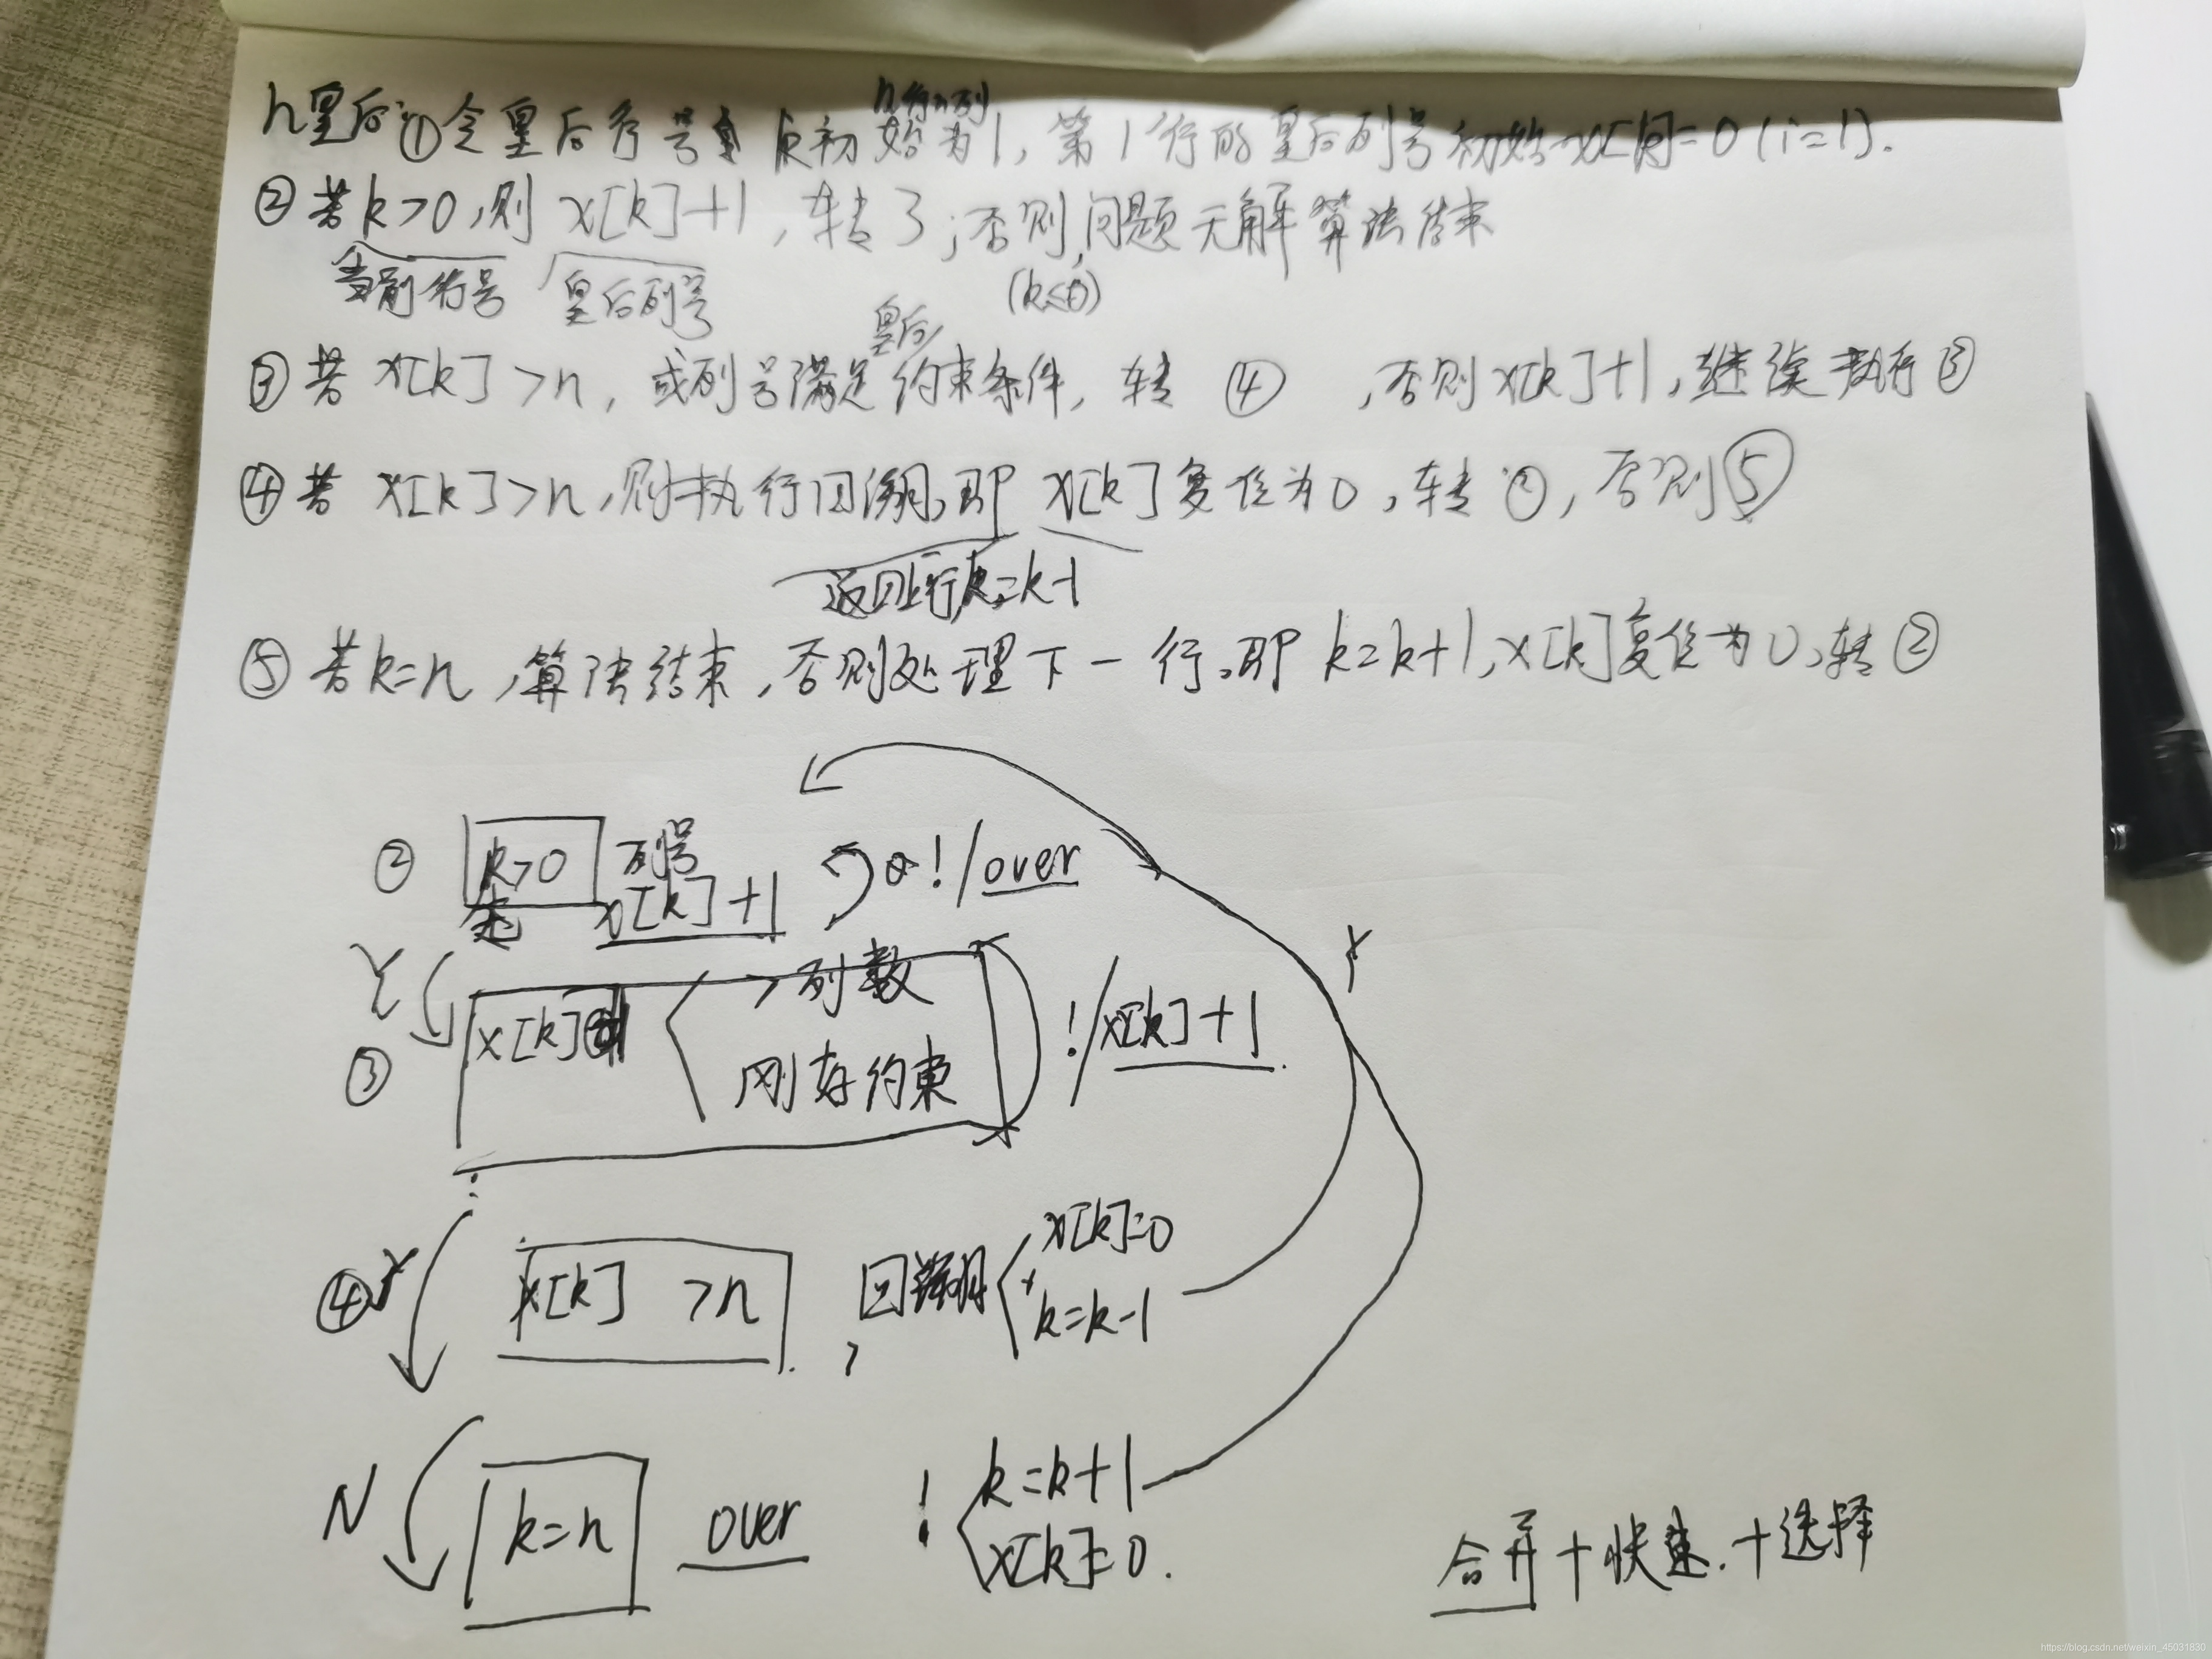 n行n列
n皇后:①令皇后序号 k初始为1,第1行的皇后列号初始x[k]=0(i=1).
②若k>0,则 x[k]+1,转3;否则,问题无解算法结束
当前行号 皇后列号 (k≤0)
皇后
③若 x[k]>n,或列号满足约束条件,转 ④ ,否则x[k]+1,继续执行③
④若 x[k]>n,则执行回溯,即 x[k]复位为0,转②,否则⑤
返回上行k=k-1
⑤若k=n,算法结束,否则处理下一行,即 k=k+1,x[k]复位为0,转②
② k>0 列号 !/over
x[k]+1
Y
Y
>列数
③ x[k] !/x[k]+1
刚好约束
x[k]=0
④ Y x[k] >n , 回溯 +
k=k-1
N k=n over ! k=k+1
x[k]=0.
合并+快速.+选择
https://blog.csdn.net/weixin_45031830